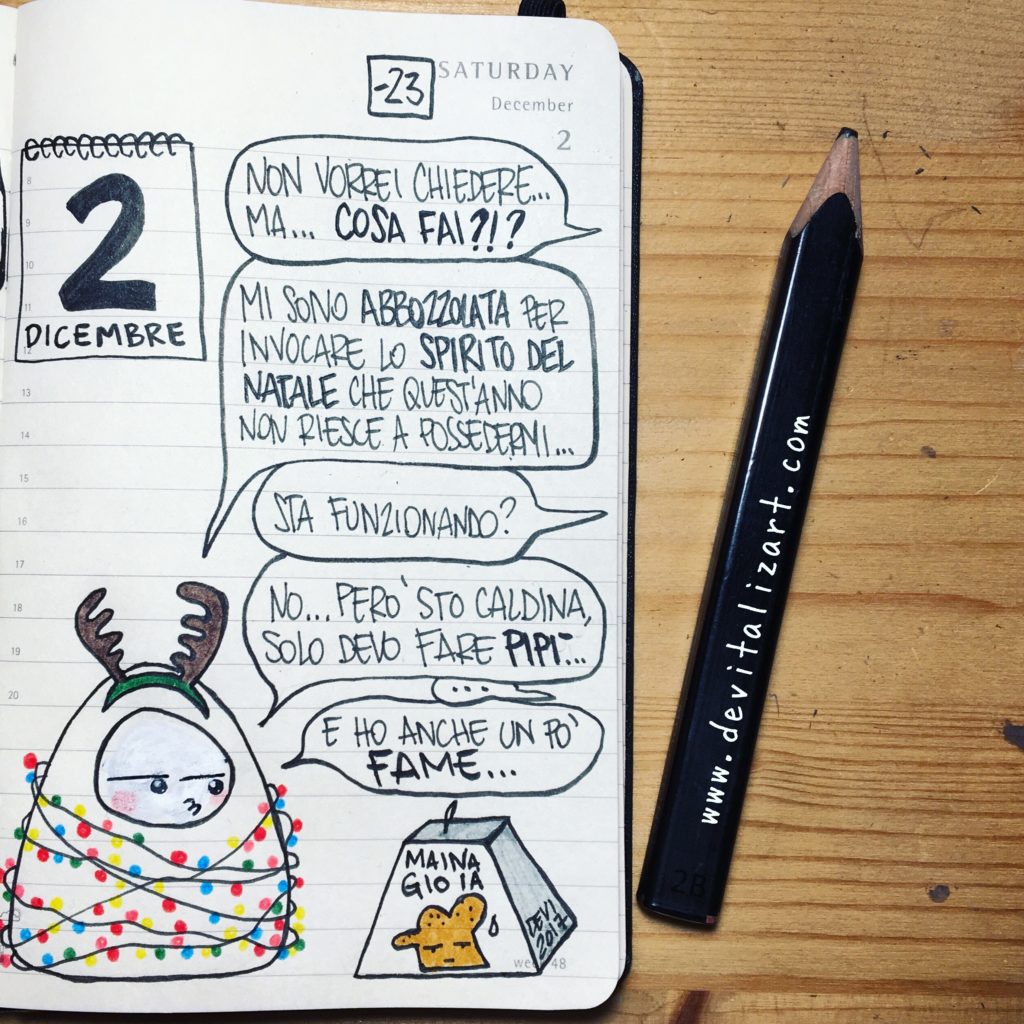 -23
SATURDAY
December
2
2
DICEMBRE
NON VORREI CHIEDERE...
MA... COSA FAI?!?
MI SONO ABBOZZOLATA PER
INVOCARE LO SPIRITO DEL
NATALE CHE QUEST'ANNO
NON RIESCE A POSSEDERMI...
STA FUNZIONANDO?
NO... PERO' STO CALDINA,
SOLO DEVO FARE PIPI'...
...
E HO ANCHE UN PO'
FAME...
8
9
10
11
12
13
14
15
16
17
18
19
20
MAINA
GIOIA
DEVI
2017
week 48
www.devitalizart.com
2B